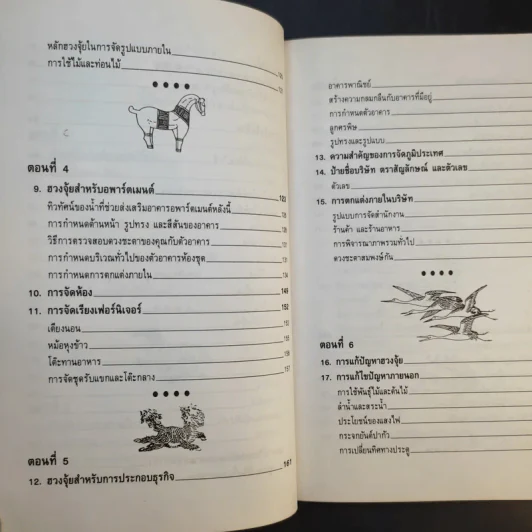 หลักฮวงจุ้ยในการจัดรูปแบบภายใน
การใช้ไม้และท่อนไม้
ตอนที่ 4
9. ฮวงจุ้ยสำหรับอพาร์ตเมนต์ 123
ทิวทัศน์ของน้ำที่ช่วยส่งเสริมอาคารอพาร์ตเมนต์หลังนี้
การกำหนดด้านหน้า รูปทรง และสีสันของอาคาร
วิธีการตรวจสอบดวงชะตาของคุณกับตัวอาคาร
การกำหนดบริเวณทั่วไปของตัวอาคารห้องชุด
การกำหนดการตกแต่งภายใน 134
10. การจัดห้อง 149
11. การจัดเรียงเฟอร์นิเจอร์ 152
เตียงนอน
หม้อหุงข้าว
โต๊ะทานอาหาร
การจัดชุดรับแขกและโต๊ะกลาง 157
ตอนที่ 5
12. ฮวงจุ้ยสำหรับการประกอบธุรกิจ 161
อาคารพาณิชย์
สร้างความกลมกลืนกับอาคารที่มีอยู่
การกำหนดตัวอาคาร
ลูกศรพิษ
รูปทรงและรูปแบบ
13. ความสำคัญของการจัดภูมิประเทศ
14. ป้ายชื่อบริษัท ตราสัญลักษณ์ และตัวเลข
ตัวเลข
15. การตกแต่งภายในบริษัท
รูปแบบการจัดสำนักงาน
ร้านค้า และร้านอาหาร
การพิจารณาภาพรวมทั่วไป
ดวงชะตาสมพงษ์กัน
ตอนที่ 6
16. การแก้ปัญหาฮวงจุ้ย
17. การแก้ไขปัญหาภายนอก
การใช้พันธุ์ไม้และต้นไม้
ลำน้ำและสระน้ำ
ประโยชน์ของแสงไฟ
กระจกยันต์ปากัว
การเปลี่ยนทิศทางประตู